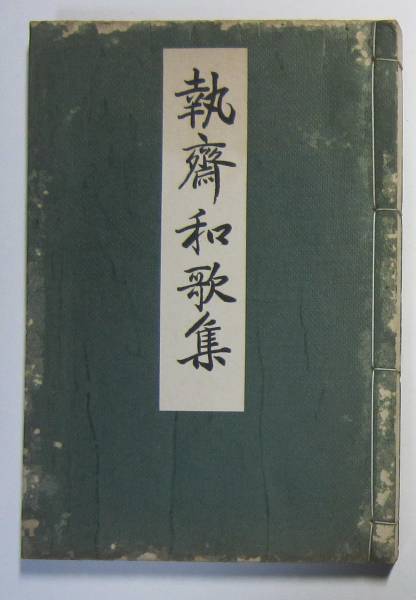 執齋和歌集